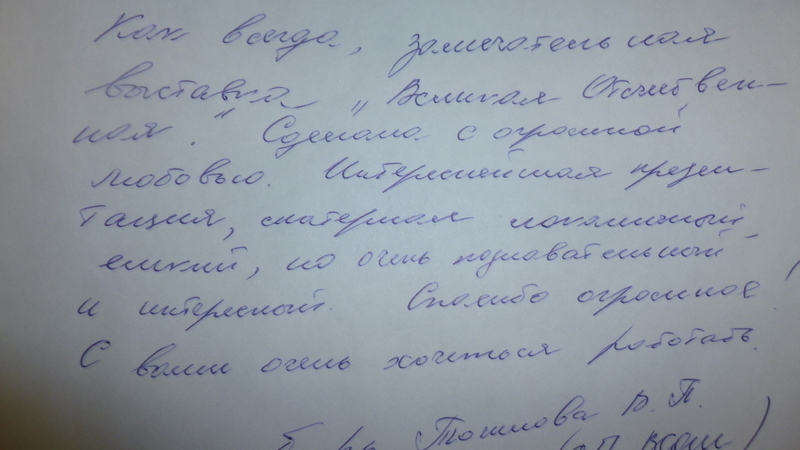 Как всегда, замечательная
выставка „Великая Отечествен-
ная." Сделана с огромной
любовью. Интереснейшая презен-
тация, материал лоханичный,
емкий, но очень познавательный
и интересный. Спасибо огромное!
С вами очень хочется работать.
В. П.